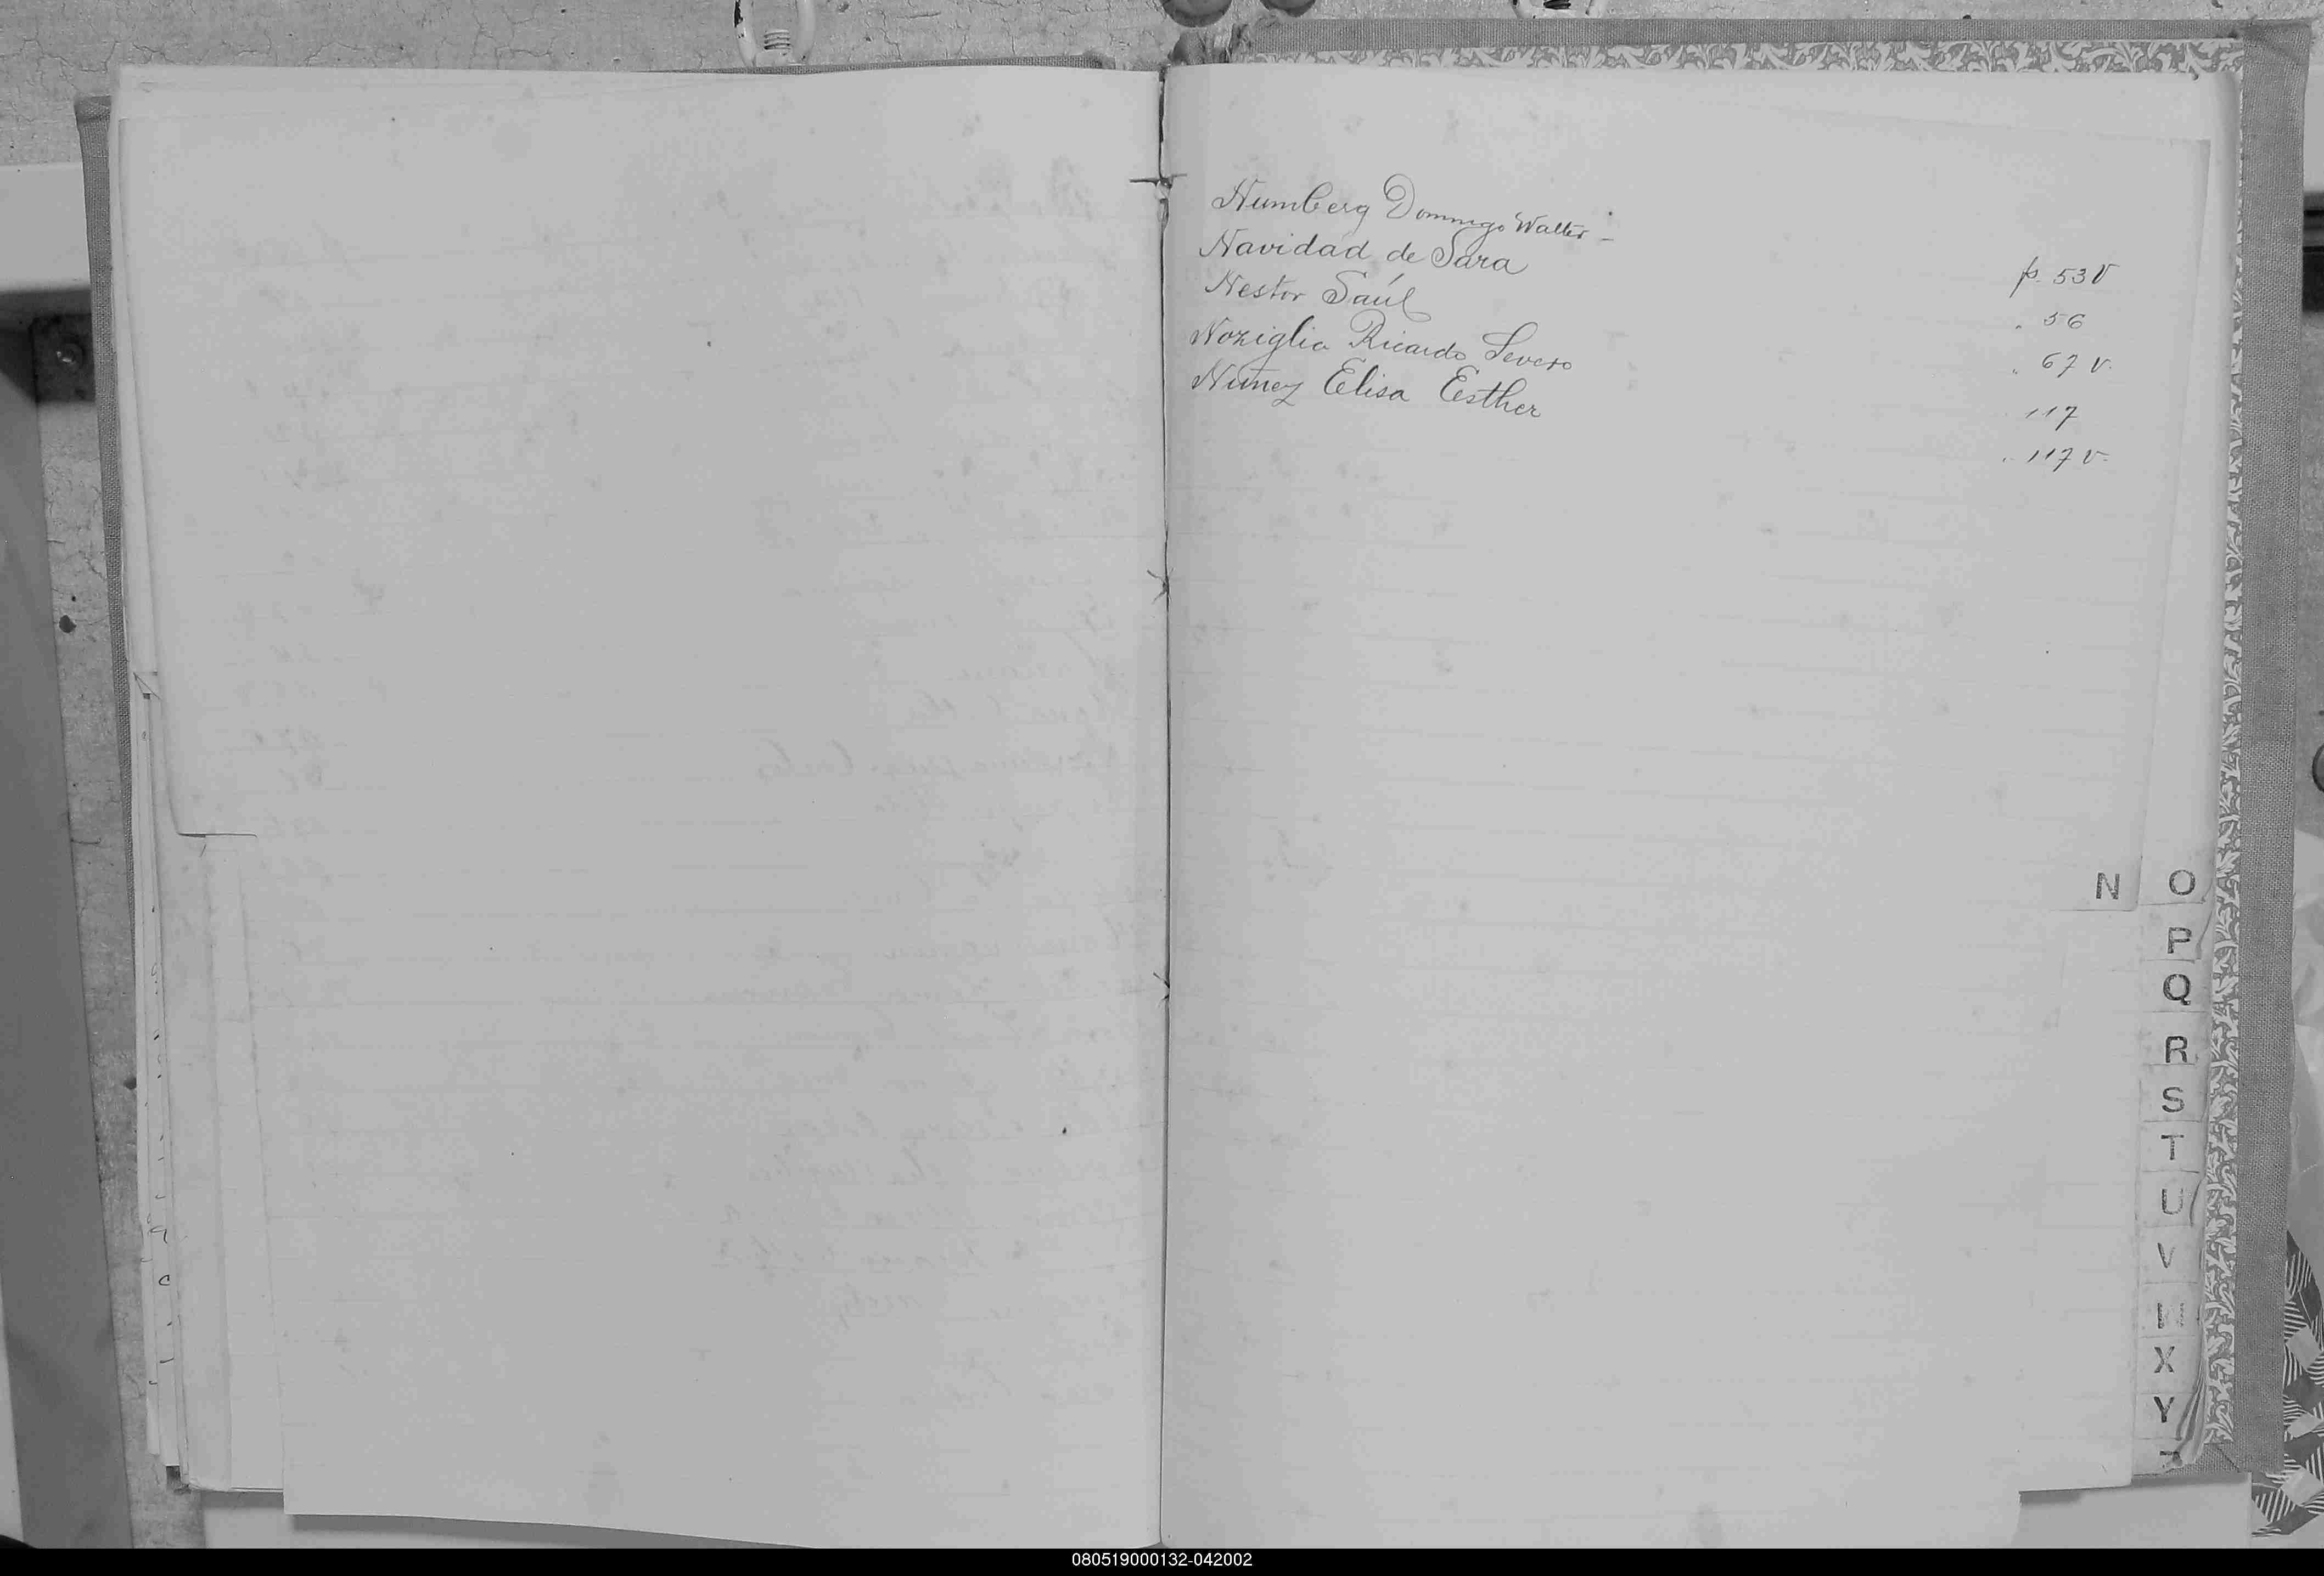 Numberg Domingo Walter - p. 53 V
Navidad de Sara " 56
Nestor Saúl " 67 V.
Noziglia Ricardo Severo 117
Nuñez Elisa Esther " 117 V.
N
O
P
Q
R
S
T
U
V
X
Y
080519000132-042002